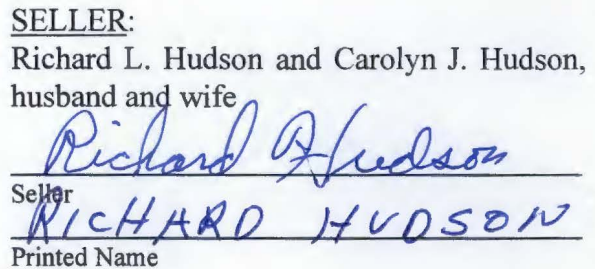 SELLER:
Richard L. Hudson and Carolyn J. Hudson,
husband and wife
Richard Hudson
Seller
RICHARD HUDSON
Printed Name